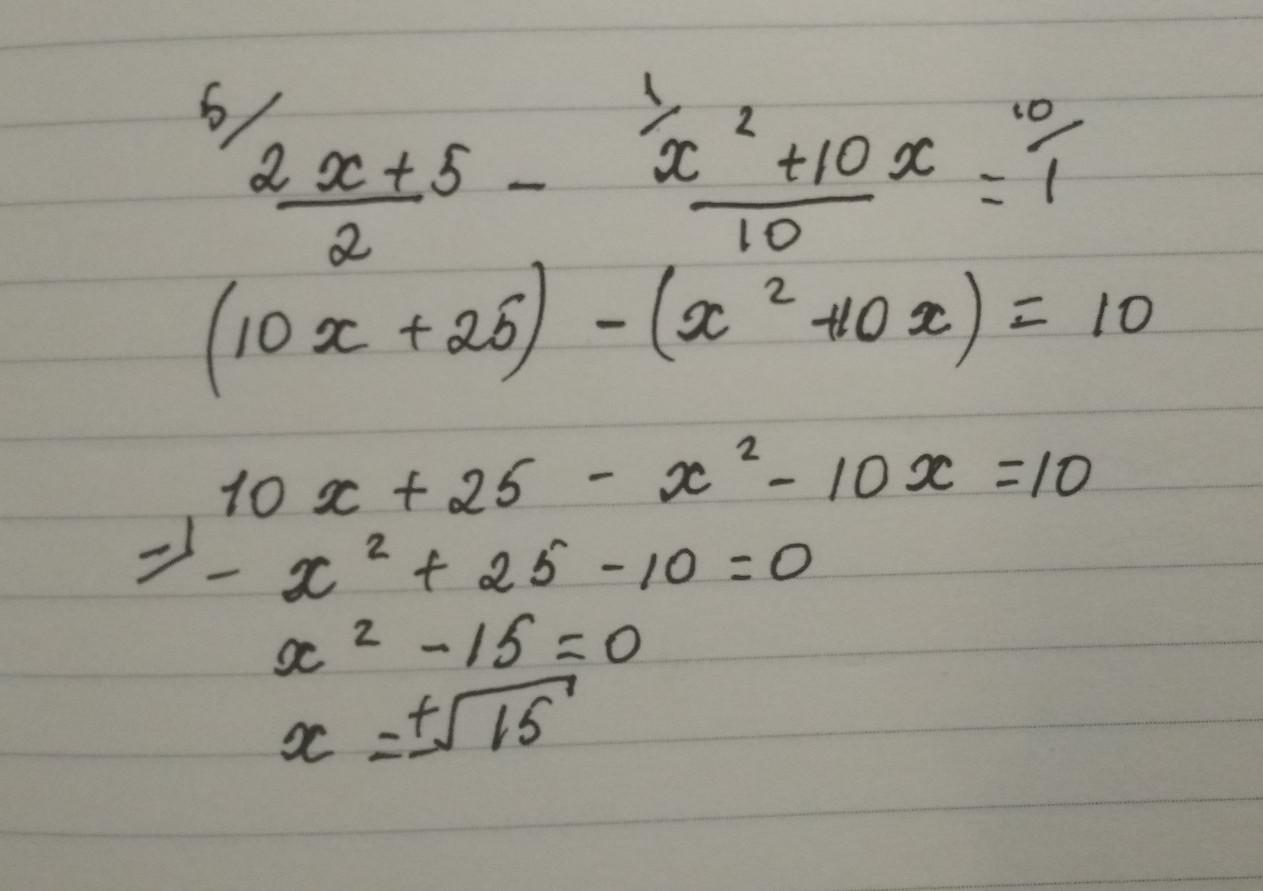 5/ 1/ 10/
2x+5 - x² +10x = 1
2 10
(10x + 25) - (x² +10x) = 10
10x + 25 - x² - 10x = 10
⇒ - x² + 25 - 10 = 0
x² - 15 = 0
x = ±√15